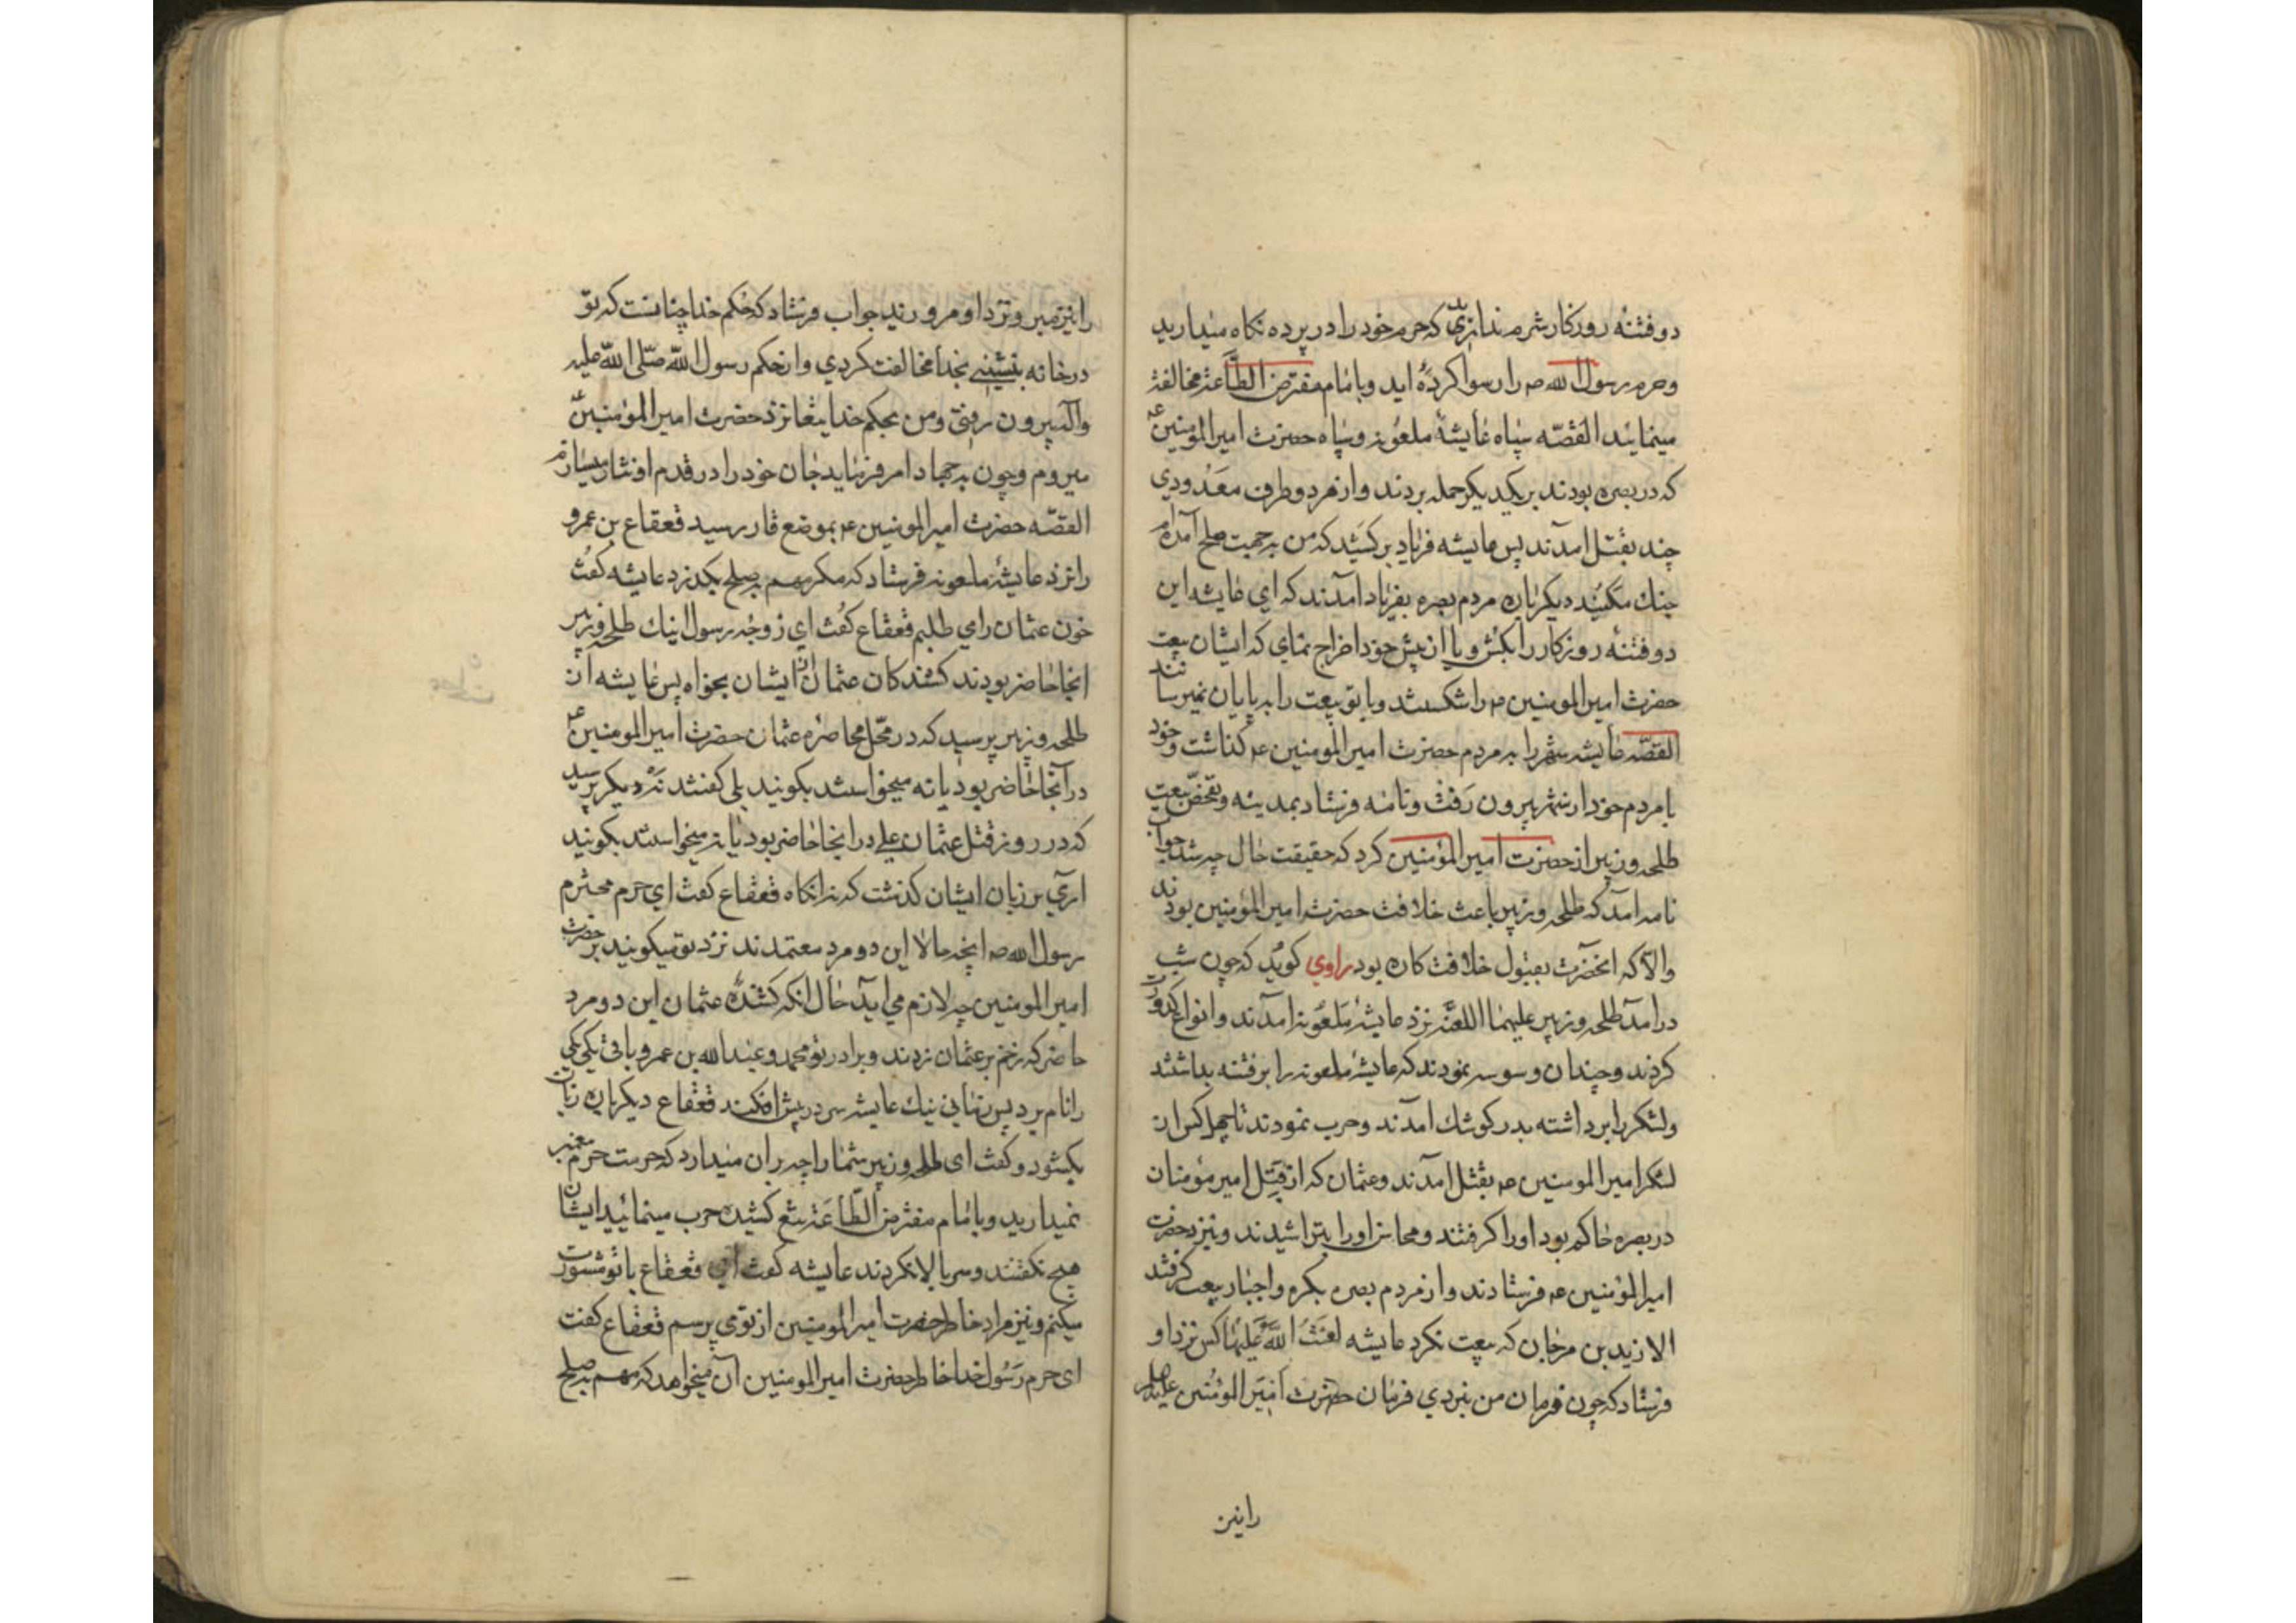 دو فتنهٔ روزکار شرم ندارید که حرم خود را در پرده نکاه میدارید
وحرم رسول الله ص را رسوا کرده اید وبا امام مفترض الطاعة مخالفة
مینمائید القصّه سپاه عایشهٔ ملعونه وسپاه حضرت امیرالمومنین ع
که در بصره بودند بر یکدیکر حمله بردند واز هر دو طرف معدودی
چند بقتل آمدند پس عایشه فریاد بر کشید که من به جهت صلح آمده ام
جنك مکنید دیکر باره مردم بصره بفریاد آمدند که ای عایشه این
دو فتنهٔ روزکار را بکش ویا از پیش خود اخراج نمای که ایشان بیعت
حضرت امیر المومنین ع را شکستند وبا تو بیعت را به پایان نمیرسانند
القصّه عایشه شهر را به مردم حضرت امیر المومنین ع کذاشت وخود
با مردم خود از شهر بیرون رفت ونامه فرستاد بمدینه وتفحّص بیعت
طلحه وزبیر از حضرت امیر المومنین کرد که حقیقت حال چه شد جواب
نامه آمد که طلحه وزبیر باعث خلافت حضرت امیر المومنین بودند
والّا که آنحضرت بقبول خلافت کاره بود راوی کوید که چون شب
درآمد طلحه وزبیر علیهما اللعنه نزد عایشهٔ ملعونه آمدند وانواع کدورت
کردند وچندان وسوسه نمودند که عایشهٔ ملعونه را بر فتنه بداشتند
ولشکر را برداشته بدر کوشك آمدند وحرب نمودند تا چهل کس از
لشکر امیر المومنین ع بقتل آمدند وعثمان که از قِبَل امیر مؤمنان
در بصره حاکم بود او را کرفتند ومحاسن او را بتراشیدند ونیز حضرت
امیر المؤمنین ع فرستادند واز مردم بصره بکره واجبار بیعت کرفتند
الا زید بن مرجان که بیعت نکرد عایشه لعنت الله علیها کس نزد او
فرستاد که چون فرمان من نبردی فرمان حضرت امیر المؤمنین علیه السلم
رانیز
رانیز مبر ونزد او مرو زید جواب فرستاد که حکم خدا چنانست که تو
در خانه بنشینی بخدا مخالفت کردی واز حکم رسول الله صلی الله علیه
وآله بیرون رفتی ومن بحکم خدایتعا نزد حضرت امیر المؤمنین ع
میروم وچون به جهاد امر فرماید جان خود را در قدم او نثار میسازم
القصّه حضرت امیر المومنین ع بموضع قار رسید قعقاع بن عمرو
را نزد عایشهٔ ملعونه فرستاد که مکر مهم بصلح بکذرد عایشه کفت
خون عثمان را می طلبم قعقاع کفت ای زوجهٔ رسول اینك طلحه وزبیر
اینجا حاضر بودند کشندکان عثمان از ایشان بخواه پس عایشه از
طلحه وزبیر پرسید که در محّل محاصرهٔ عثمان حضرت امیر المومنین ع
در آنجا حاضر بود یا نه میخواستند بکویند بلی کفتند نه دیکر پرسید
که در روز قتل عثمان علی در اینجا حاضر بود یا نه میخواستند بکویند
آری بر زبان ایشان کذشت که نه آنکاه قعقاع کفت ای حرم محترم
رسول الله ص اینچه حالا این دو مرد معتمدند نزد تو میکویند بر حضرت
امیر المومنین چه لازم می آید حال آنکه کشندهٔ عثمان این دو مرد
حاضر که زخم بر عثمان زدند وبرادر تو محمد وعبدالله بن عمرو باقی یکی یکی
را نام برد پس زمانی نیك عایشه سر در پیش افکند قعقاع دیکر باره زبان
بکشود وکفت ای طلحه وزبیر شما را چه بر آن میدارد که حرمت حرم پیغمبر
نمیدارید وبا امام مفترض الطّاعة تیغ کشیده حرب مینمائید ایشان
هیچ نکفتند وسر بالا نکردند عایشه کفت ای قعقاع با تو مشورت
میکنم ونیز مراد خاطر حضرت امیر المومنین از تو می پرسم قعقاع کفت
ای حرم رسول خدا خاطر حضرت امیر المومنین آن میخواهد که مهم به صلح